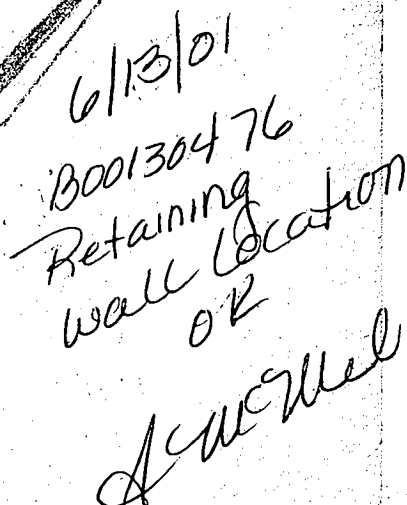 6/13/01
B00130476
Retaining
Wall Location
OK